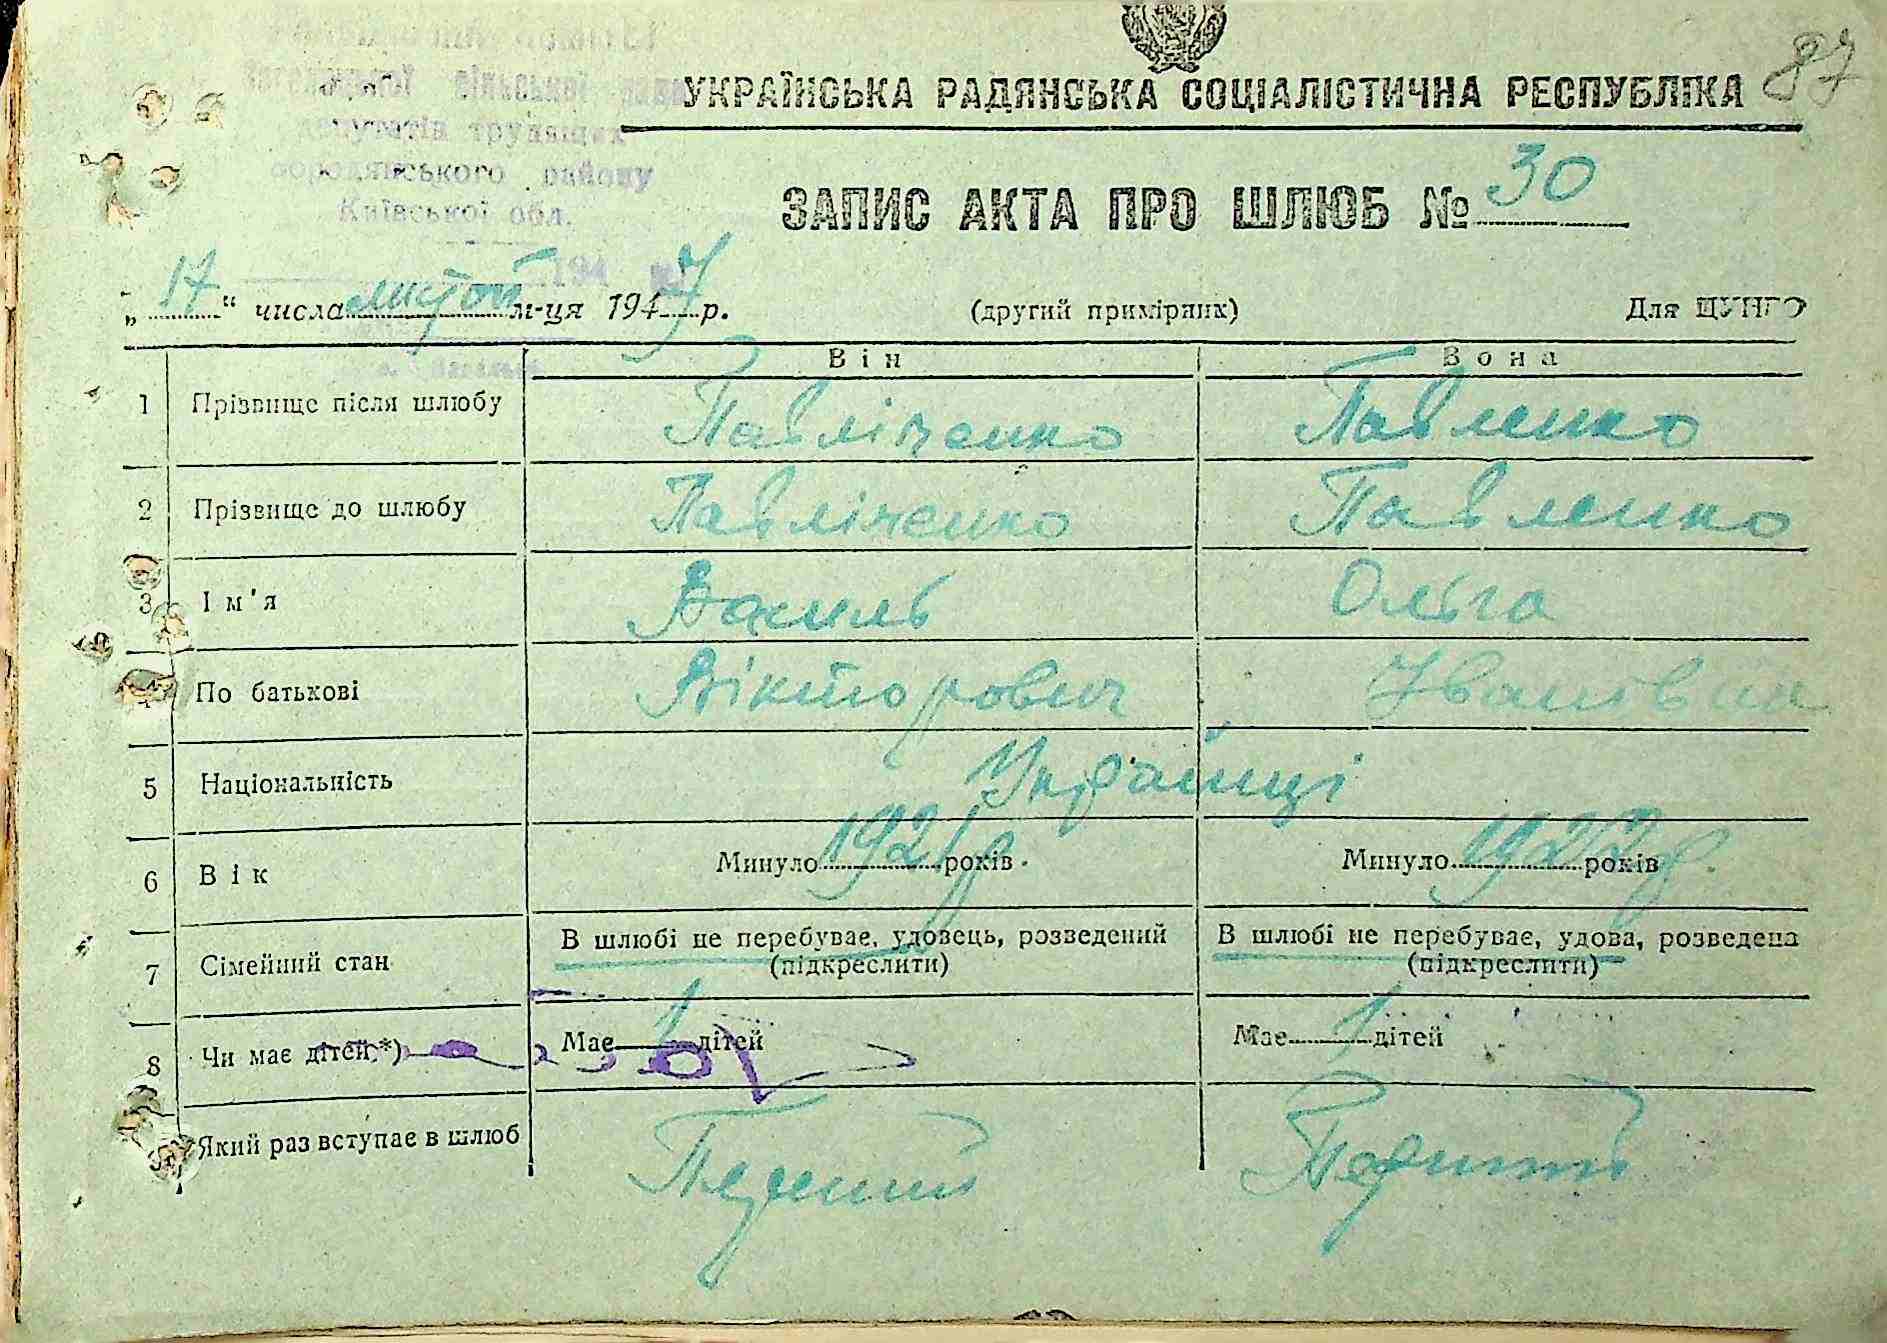 87
УКРАЇНСЬКА РАДЯНСЬКА СОЦІАЛІСТИЧНА РЕСПУБЛІКА
сільської
депутатів трудящих
Бородянського району
Київської обл.
194
ЗАПИС АКТА ПРО ШЛЮБ № 30
„ 17 “ числа м-ця 1947 р. (другий примірник) Для ЦУНГО
Він Вона
1 Прізвище після шлюбу Павліченко Павленко
2 Прізвище до шлюбу Павліченко Павленко
3 Ім'я Василь Ольга
4 По батькові Вікторович Іванівна
5 Національність Українці
6 Вік Минуло 1921 р років Минуло 1922 р. років
7 Сімейний стан В шлюбі не перебуває, удовець, розведений В шлюбі не перебуває, удова, розведена
(підкреслити) (підкреслити)
8 Чи має дітей *) Має 1 дітей Має 1 дітей
Який раз вступає в шлюб Перший Перший